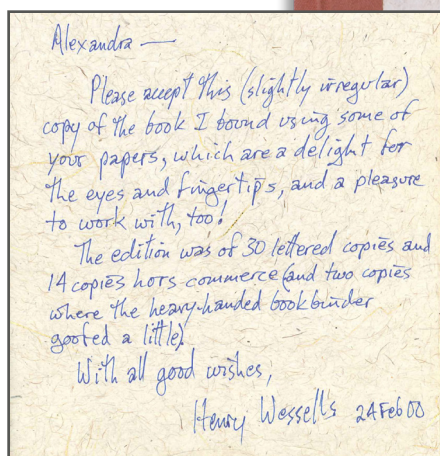 Alexandra —
Please accept this (slightly irregular)
copy of the book I bound using some of
your papers, which are a delight for
the eyes and fingertips, and a pleasure
to work with, too!
The edition was of 30 lettered copies and
14 copies hors commerce (and two copies
where the heavy-handed bookbinder
goofed a little).
With all good wishes,
Henry Wessells 24 Feb 00